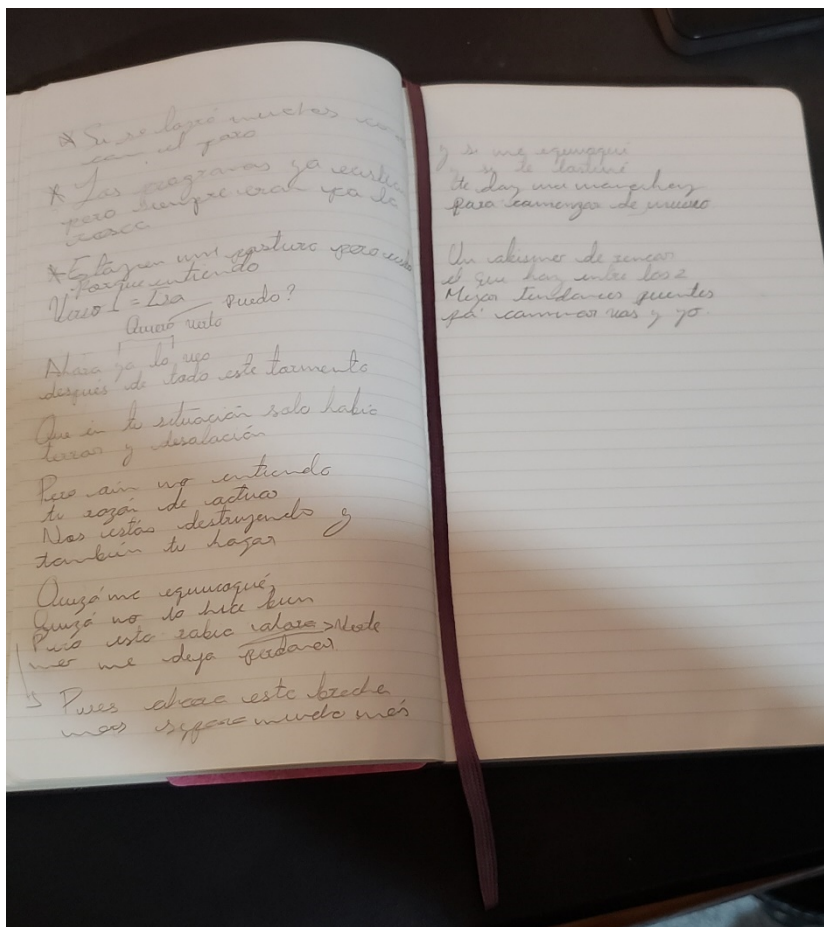 * Si se logró muchas
con el paro
* Los programas ya
pero siempre eran pa la
rosca
* Estoy en una postura pero
Porque entiendo
Verso 1 = Isa
Puedo?
Quiero verlo
Ahora ya lo veo
después de todo este tormento
Que en tu situación solo había
terror y desolación
Pero aún no entiendo
tu razón de actuar
Nos estás destruyendo y
también tu hogar
Quizá me equivoqué,
Quizá no lo hice bien
Pero esta rabia ahora
me deja perdonar
Pues ahora esta brecha
nos separa mucho más
y si me equivoqué
y si te lastimé
te doy mi mano hoy
para comenzar de nuevo
Un abismo de rencor
el que hay entre los 2
Mejor tendamos puentes
pa' caminar vos y yo.